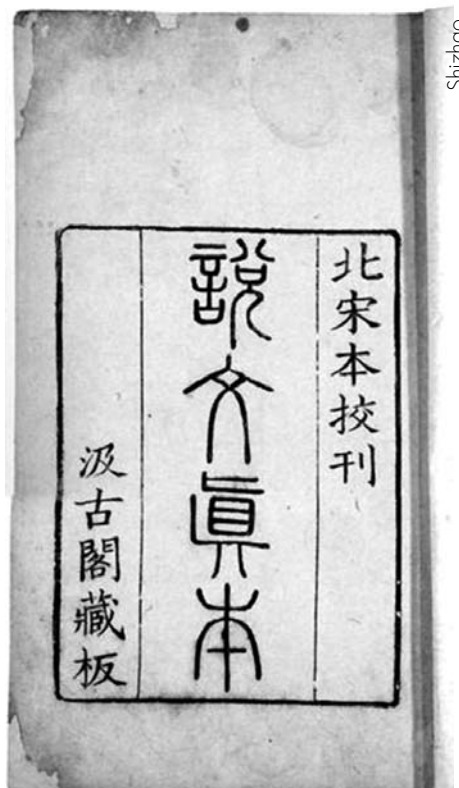 北宋本挍刊
說文眞本
汲古閣藏板
Shizhao